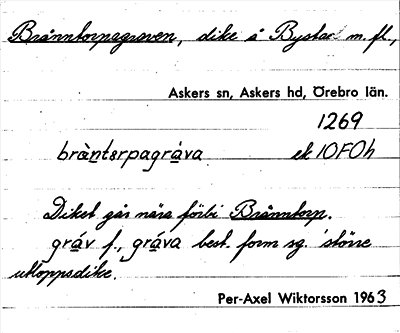 Brånntorpagraven, dike å Bystad m. fl.,
Askers sn, Askers hd, Örebro län.
1269
brànterpagráva ek 10F0h
Diket går nära förbi Brånntorp.
gráv f., gráva best. form sg. 'större
utloppsdike.
Per-Axel Wiktorsson 1963